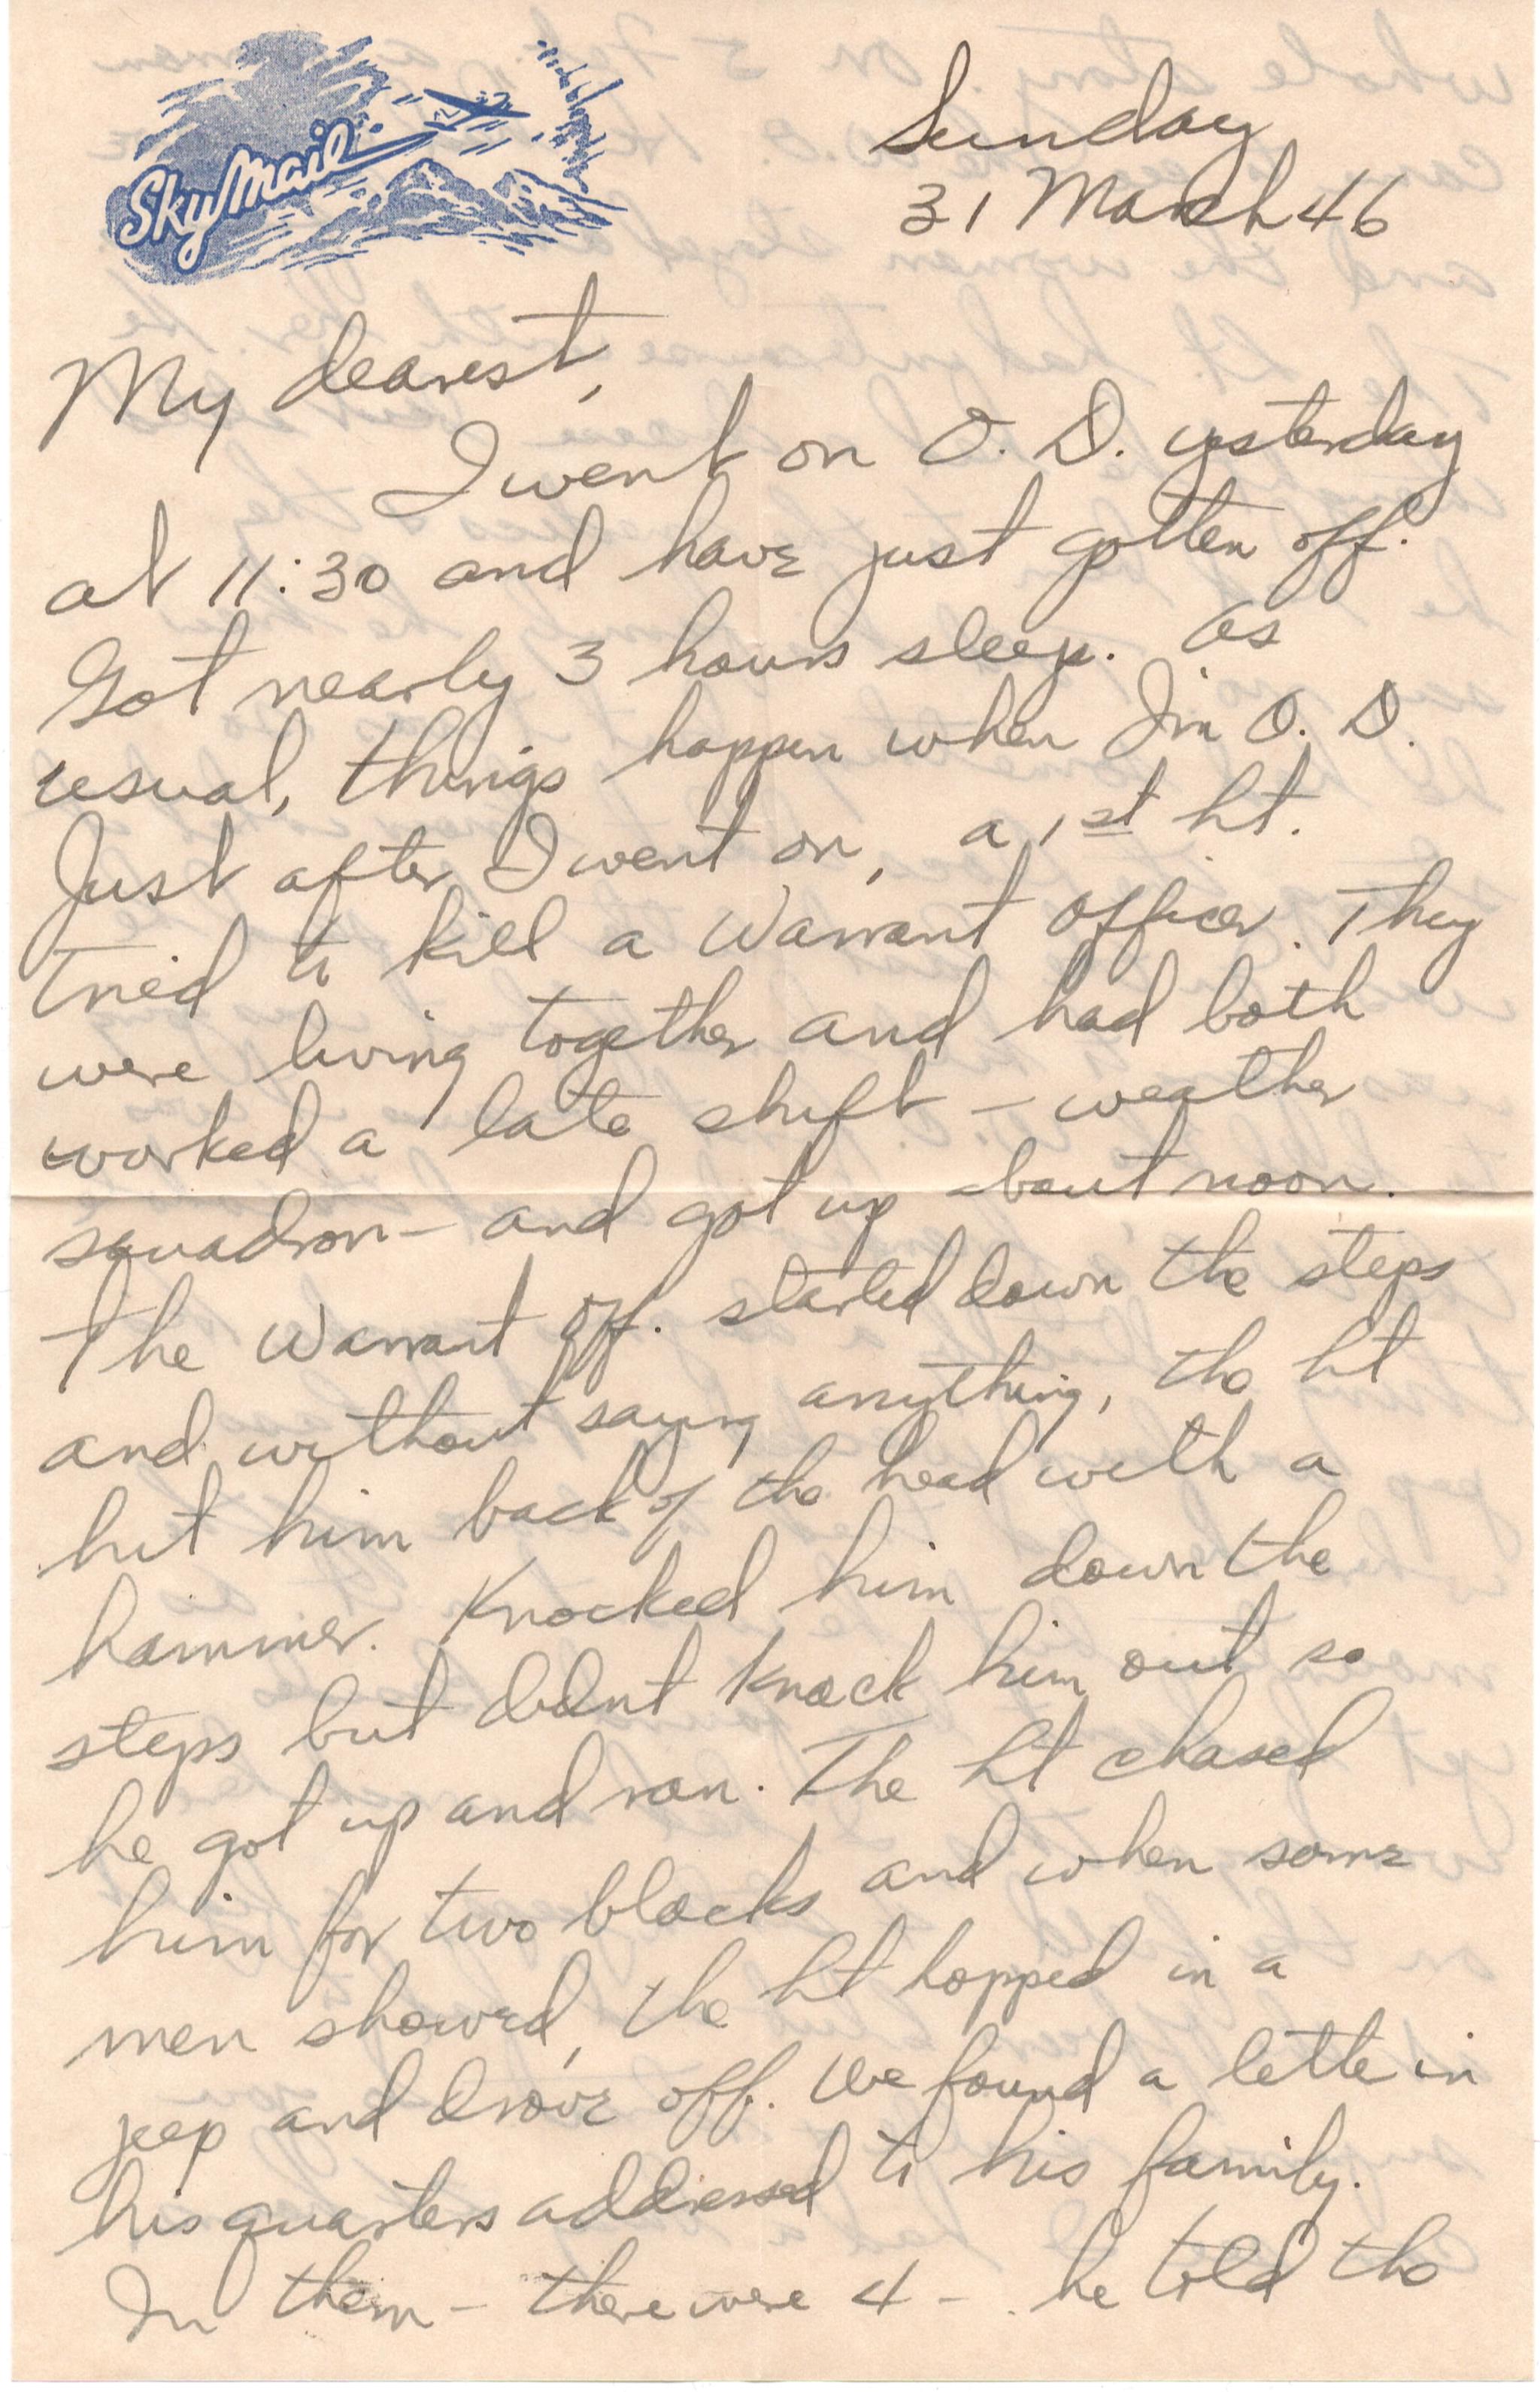 Sky Mail
Sunday
31 March 46
My dearest,
I went on O. D. yesterday
at 11:30 and have just gotten off.
Got nearly 3 hours sleep. As
usual, things happen when I'm O. D.
Just after I went on, a 1st Lt.
tried to kill a Warrant Officer. They
were living together and had both
worked a late shift – weather
squadron – and got up about noon.
The Warrant Off. started down the steps
and without saying anything, the Lt
hit him back of the head with a
hammer. Knocked him down the
steps but didnt knock him out so
he got up and ran. The Lt chased
him for two blocks and when some
men showed, the Lt hopped in a
jeep and drove off. We found a lette in
his quarters addressed to his family.
In them – there were 4 – he told the